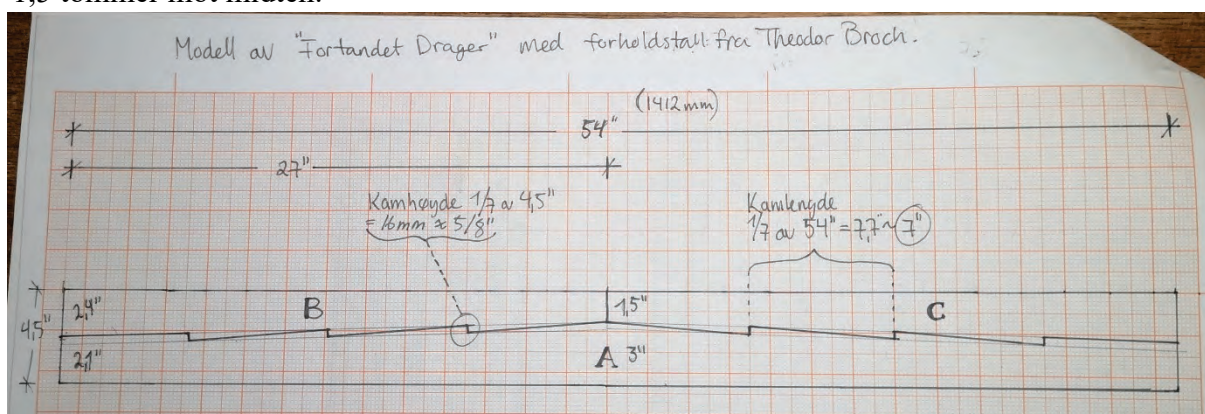 1,5 tommer mot midten.
Modell av "Fortandet Drager" med forholdstall fra Theodor Broch.
(1412 mm)
54"
27"
Kamhøyde 1/7 av 4,5"
= 16mm ≈ 5/8"
Kamlengde
1/7 av 54" = 7,7" ~ 7"
2,4"
B
1,5"
C
4,5"
2,1"
A 3"